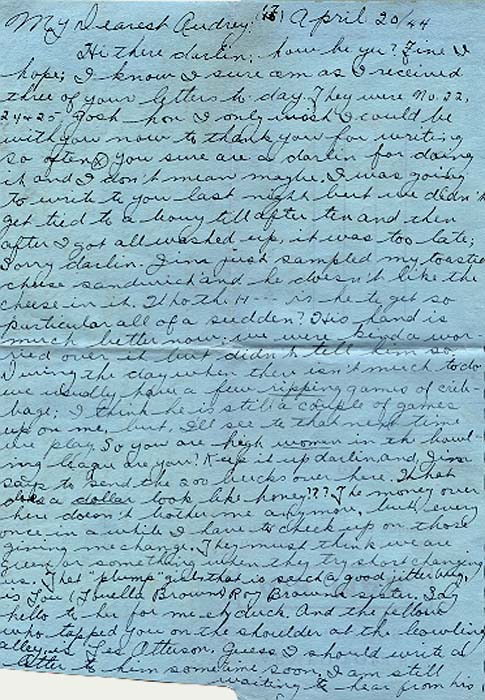 My Dearest Audrey: (17) April 20/44
Hi there darlin; how be yu? Fine I
hope; I know I sure am as I received
three of your letters to day. They were No. 22,
24 + 25 Gosh hon I only wish I could be
with you now to thank you for writing
so often. You sure are a darlin for doing
it and I don't mean maybe. I was going
to write to you last night but we didn't
get tied to a bouy till after ten and then
after I got all washed up, it was too late;
Sorry darlin. Jim just sampled my toasted
cheese sandwich and he doesn't like the
cheese in it. Who th H--- is he to get so
particular all of a sudden? His hand is
much better now; we were kind a wor-
ried over it but didn't tell him so.
During the day when there isn't much to do
we usually have a few ripping games of crib-
bage; I think he is still a couple of games
up on me, but I'll see to that next time
we play. So you are high women in the bowl-
ing league are you? Keep it up darlin and Jim
says to send the 200 bucks over here. What
does a dollar look like honey??? The money over
here doesn't bother me any more, but every
once in a while I have to check up on those
giving me change. They must think we are
green or something when they try short changing
us. That "plump" girl that is such a good jitter bug,
is Lou (Louella Brown) Roy Browns sister. Say
hello to her for me my duck. And the fellow
who tapped you on the shoulder at the bowling
alley is Les Atterson. Guess I should write a
letter to him sometime soon, I am still
waiting to hear from his